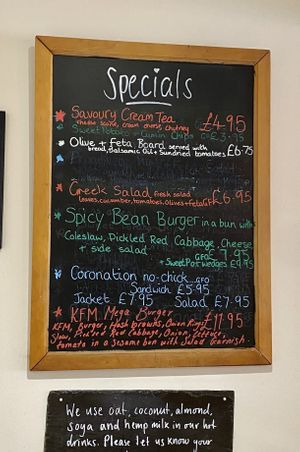 Specials
Savoury Cream Tea £4.95
cheese scone, cream cheese, chutney
Sweet Potato + Cumin Chips £3.95
Olive + Feta Board served with
bread, Balsamic Oil + Sundried tomatoes £6.75
Greek Salad fresh salad £6.95
leaves, cucumber, tomatoes, olives + feta GF
Spicy Bean Burger in a bun with
Coleslaw, Pickled Red Cabbage, Cheese
+ side salad GFO 7.95
+ Sweet Pot wedges £9.95
Coronation no-chick GFO
Sandwich £5.95
Jacket £7.95 Salad £7.95
KFM Mega Burger £11.95
KFM, Burger, Hash browns, Onion Rings,
Slaw, Pickled Red Cabbage, Onion, lettuce,
tomato in a sesame bun with Salad Garnish.
We use oat, coconut, almond,
soya and hemp milk in our hot
drinks. Please let us know your